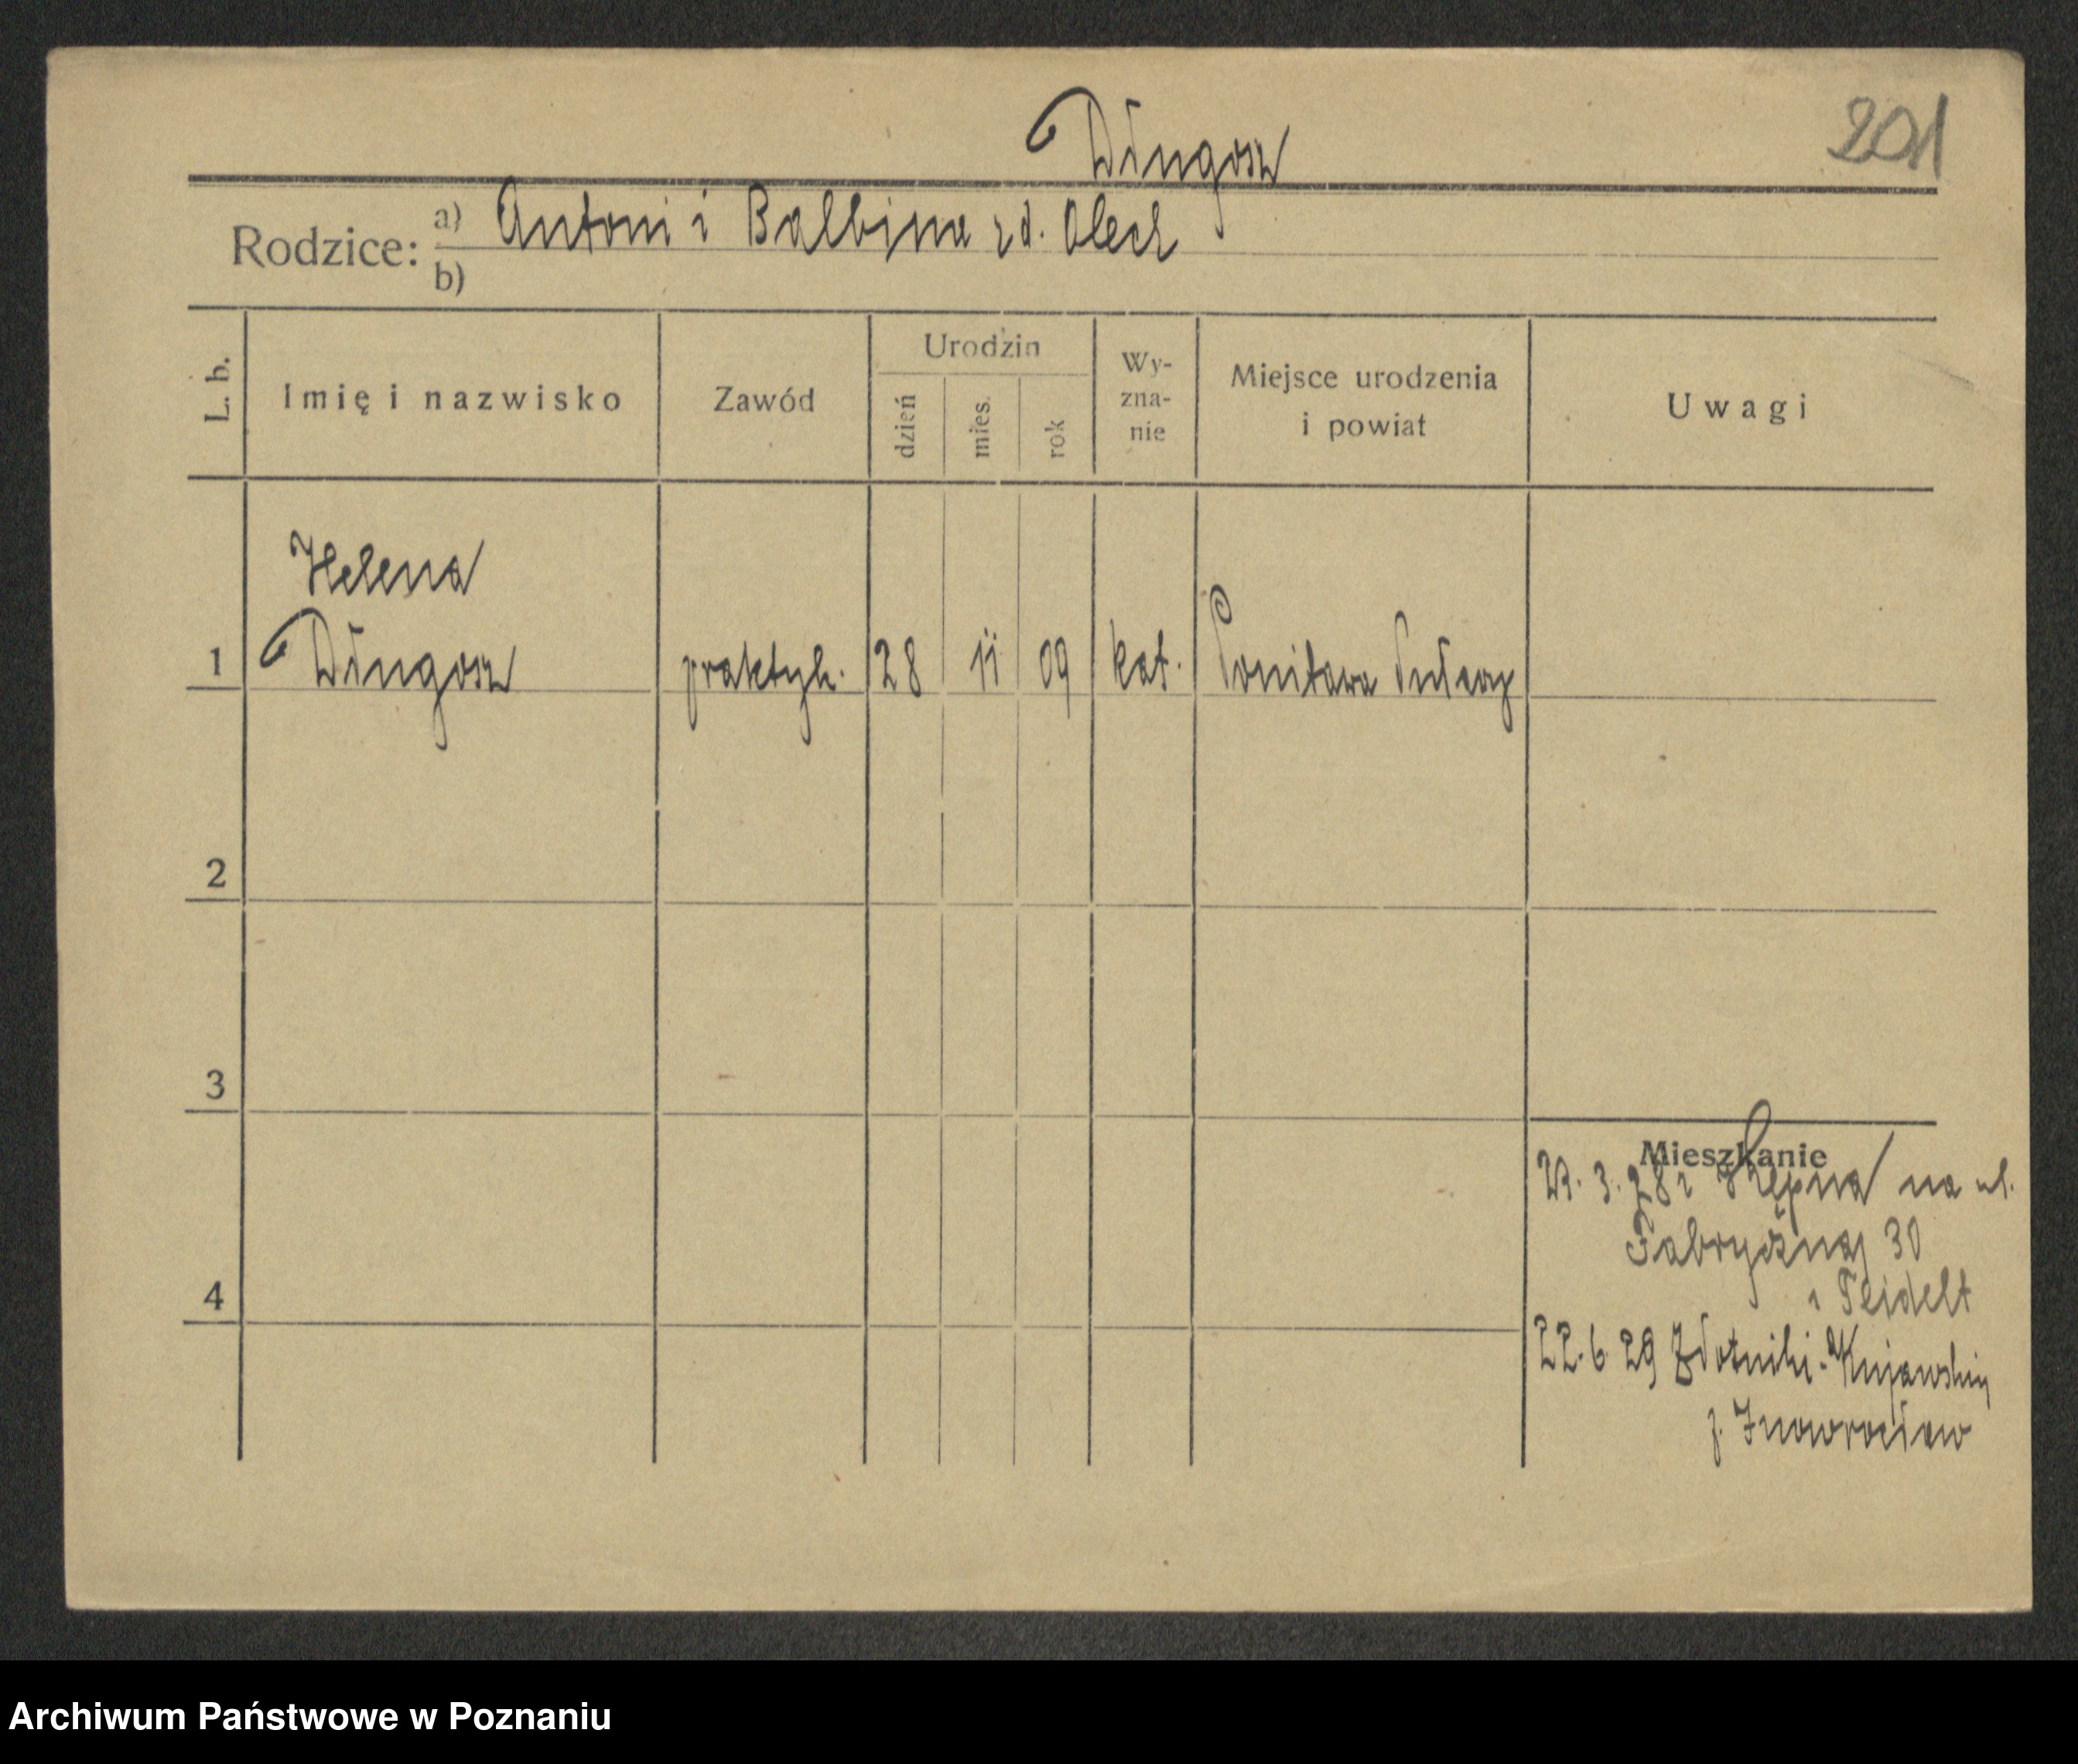 Długosz
201
Rodzice: a) Antoni i Balbina zd. Olech
b)
L. b.
Imię i nazwisko
Zawód
Urodzin
dzień
mies.
rok
Wy-
zna-
nie
Miejsce urodzenia
i powiat
Uwagi
Helena
1 Długosz praktyk. 28 11 09 kat.
2
3
4
Mieszkanie
3. 28 z Kępna na ul.
Fabryczną 30
22.6.29 Złotniki-Kujawskie
p. Inowrocław
Archiwum Państwowe w Poznaniu